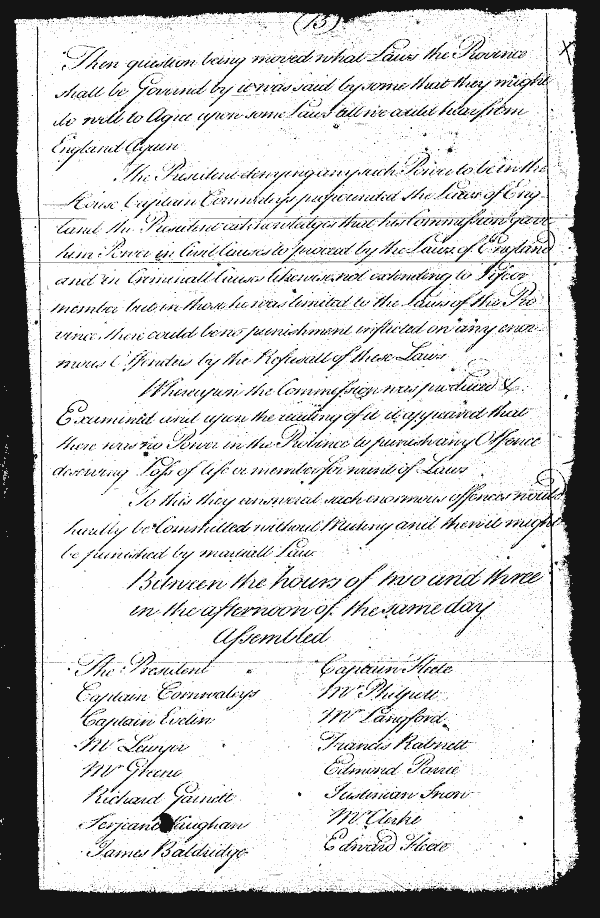 (15)
Then question being moved what Laws the Province
shall be Govern'd by it was said by some that they might
do well to Agree upon some Laws till we could hear from
England Again
The President denying any such Power to be in the
House Captain Cornwaleys propounded the Laws of Eng-
land the President acknowledges that his Commission gave
him Power in Civil Causes to proceed by the Laws of England
and in Criminall Causes likewise not extending to Life or
member but in those he was limited to the Laws of the Pro
vince there could be no punishment inflicted on any enor-
mous Offenders by the Refusall of these Laws
Whereupon the Commission was produced &
Examined and upon the reading of it it appeared that
there was no Power in the Province to punish any Offence
deserving Loss of life or member for want of Laws
To this they answered such enormous offences would
hardly be Committed without Mutiny and then it might
be punished by martiall Law
Between the hours of two and three
in the afternoon of the same day
Assembled
The President
Captain Cornwaleys
Captain Evelin
Mr Lewger
Mr Greene
Richard Garnett
Serjeant Vaughan
James Baldridge
Captain Fleete
Mr Philpott
Mr Langford
Francis Rabnett
Edmond Parrie
Justinian Snow
Mr Clerke
Edward Fleete